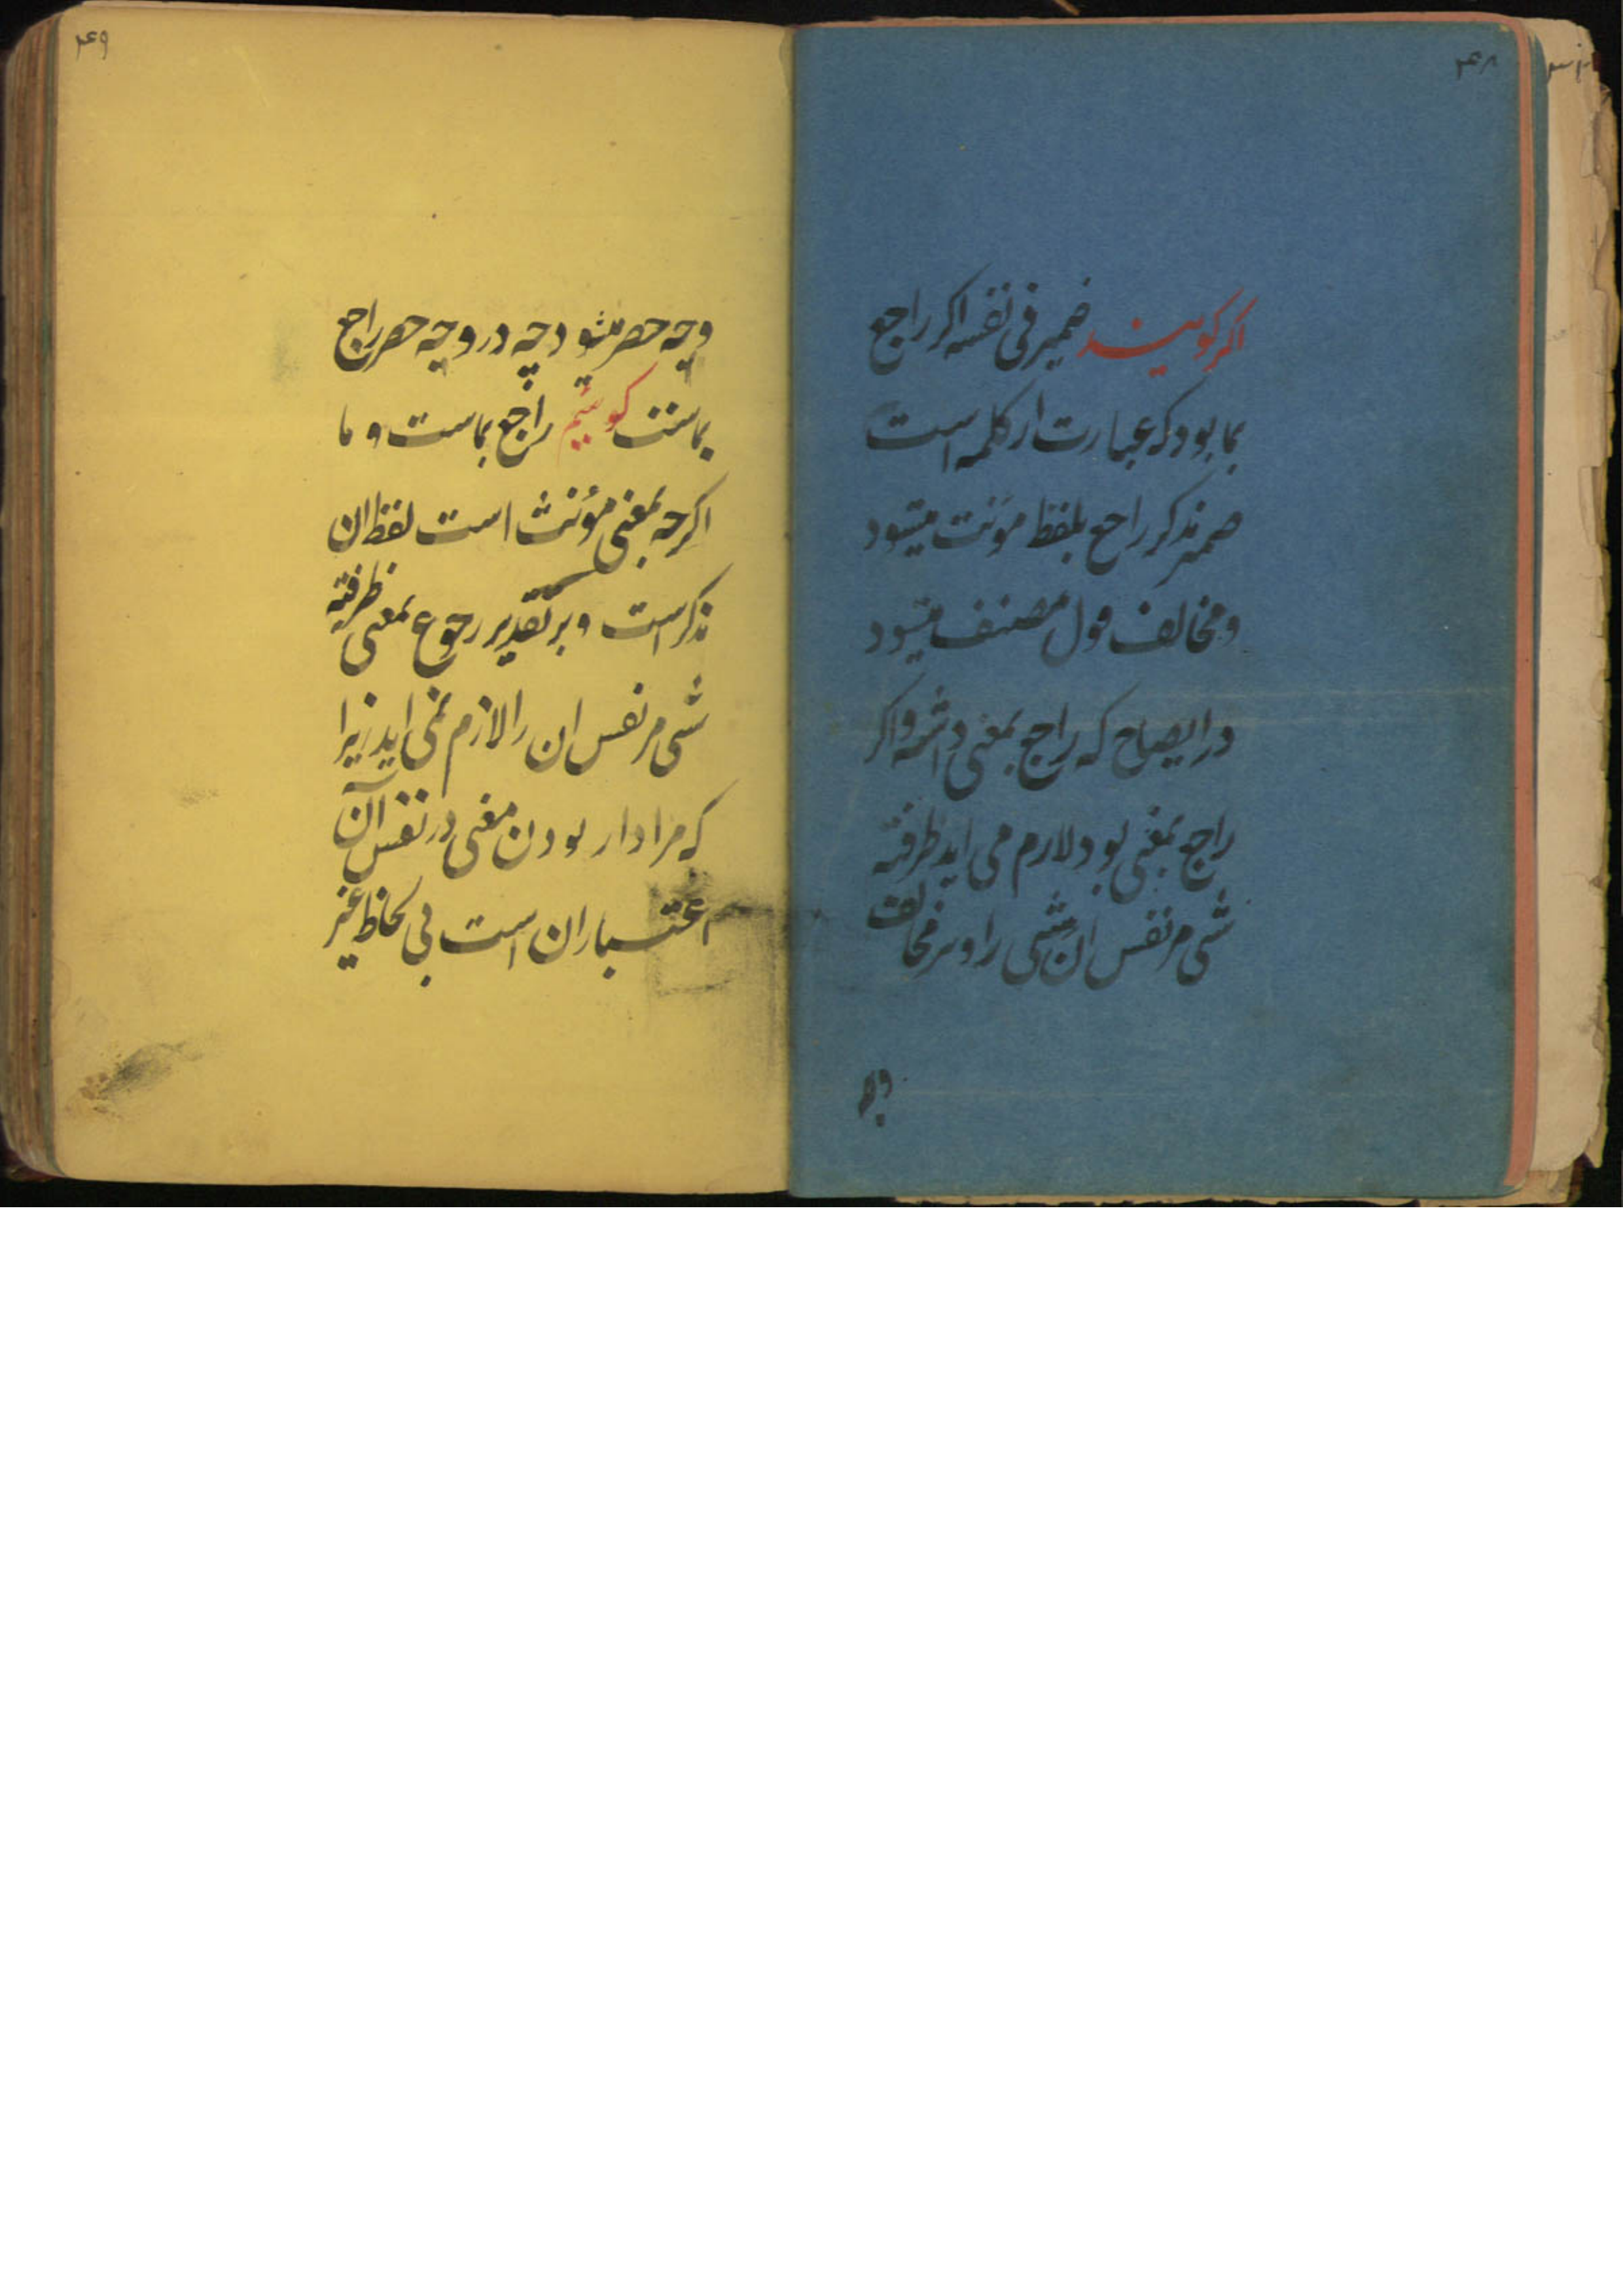 ۴۸
اکر کویند ضمیر فی نفسه اکر راجع
بما بود که عبارت از کلمه است
ضمیر مذکر راجع بلفظ مؤنث میشود
و مخالف قول مصنف میشود
در ایضاح که راجع بمعنی داشته و اکر
راجع بمعنی بود لازم می اید ظرفیة
شی مر نفس ان شی را و نیز مخالف
وجه
۴۹
وجه حصر میشود چه در وجه حصر راجع
بماست کوئیم راجع بماست و ما
اکرچه بمعنی مؤنث است لفظ ان
مذکر است و بر تقدیر رجوع بمعنی ظرفیة
شی مر نفس ان را لازم نمی اید زیرا
که مراد از بودن معنی در نفس آن
اعتبار ان است بی لحاظ غیر